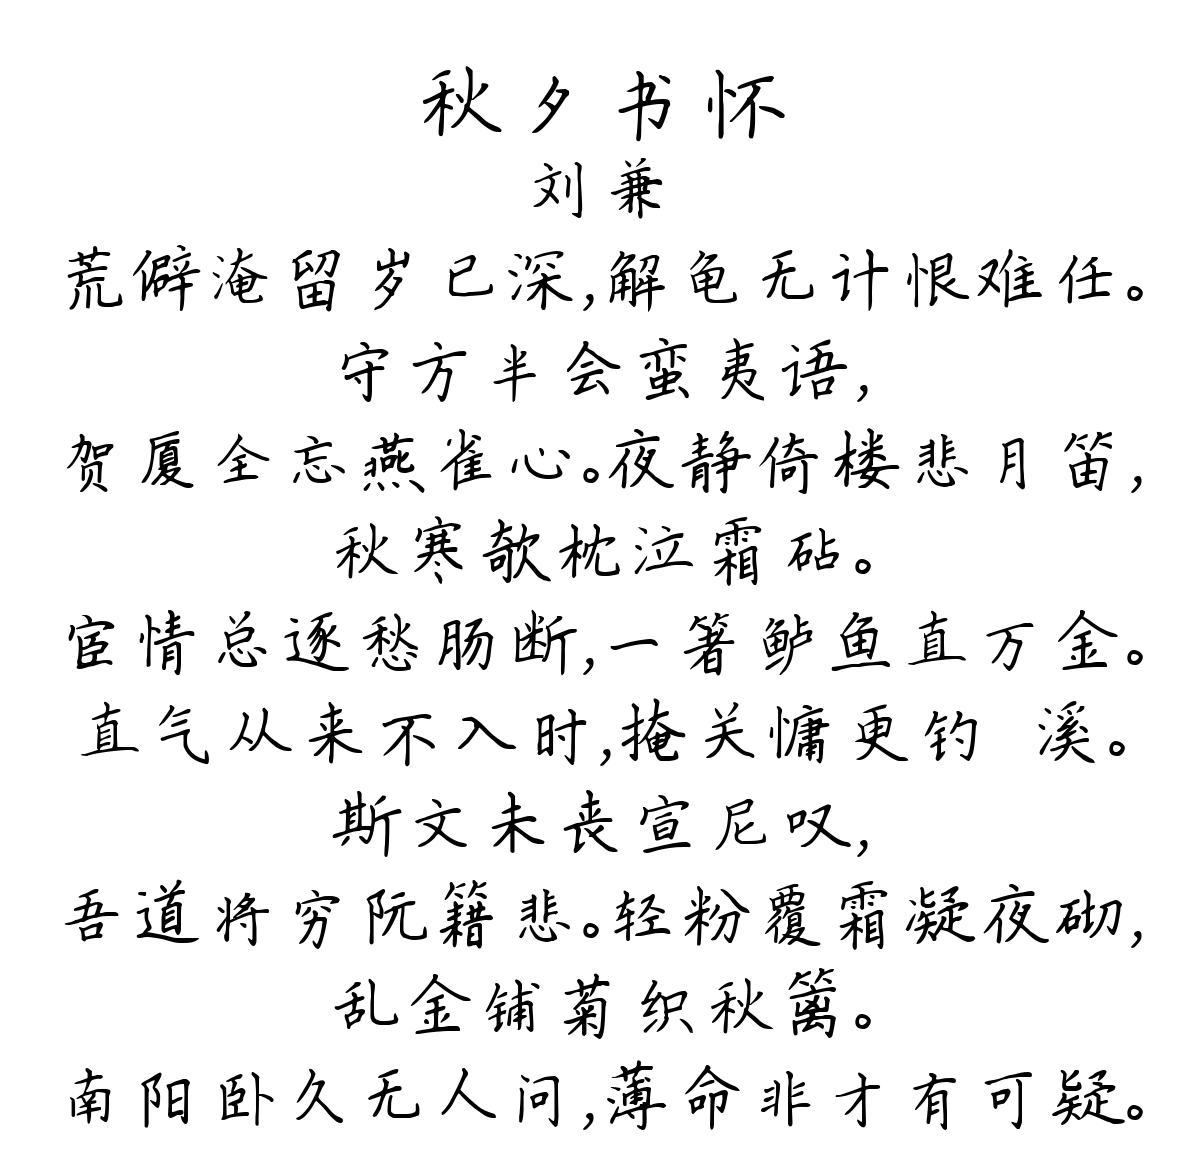 秋夕书怀
刘兼
荒僻淹留岁已深,解龟无计恨难任。
守方半会蛮夷语,
贺厦全忘燕雀心。夜静倚楼悲月笛,
秋寒欹枕泣霜砧。
宦情总逐愁肠断,一箸鲈鱼直万金。
直气从来不入时,掩关慵更钓 溪。
斯文未丧宣尼叹,
吾道将穷阮籍悲。轻粉覆霜凝夜砌,
乱金铺菊织秋篱。
南阳卧久无人问,薄命非才有可疑。